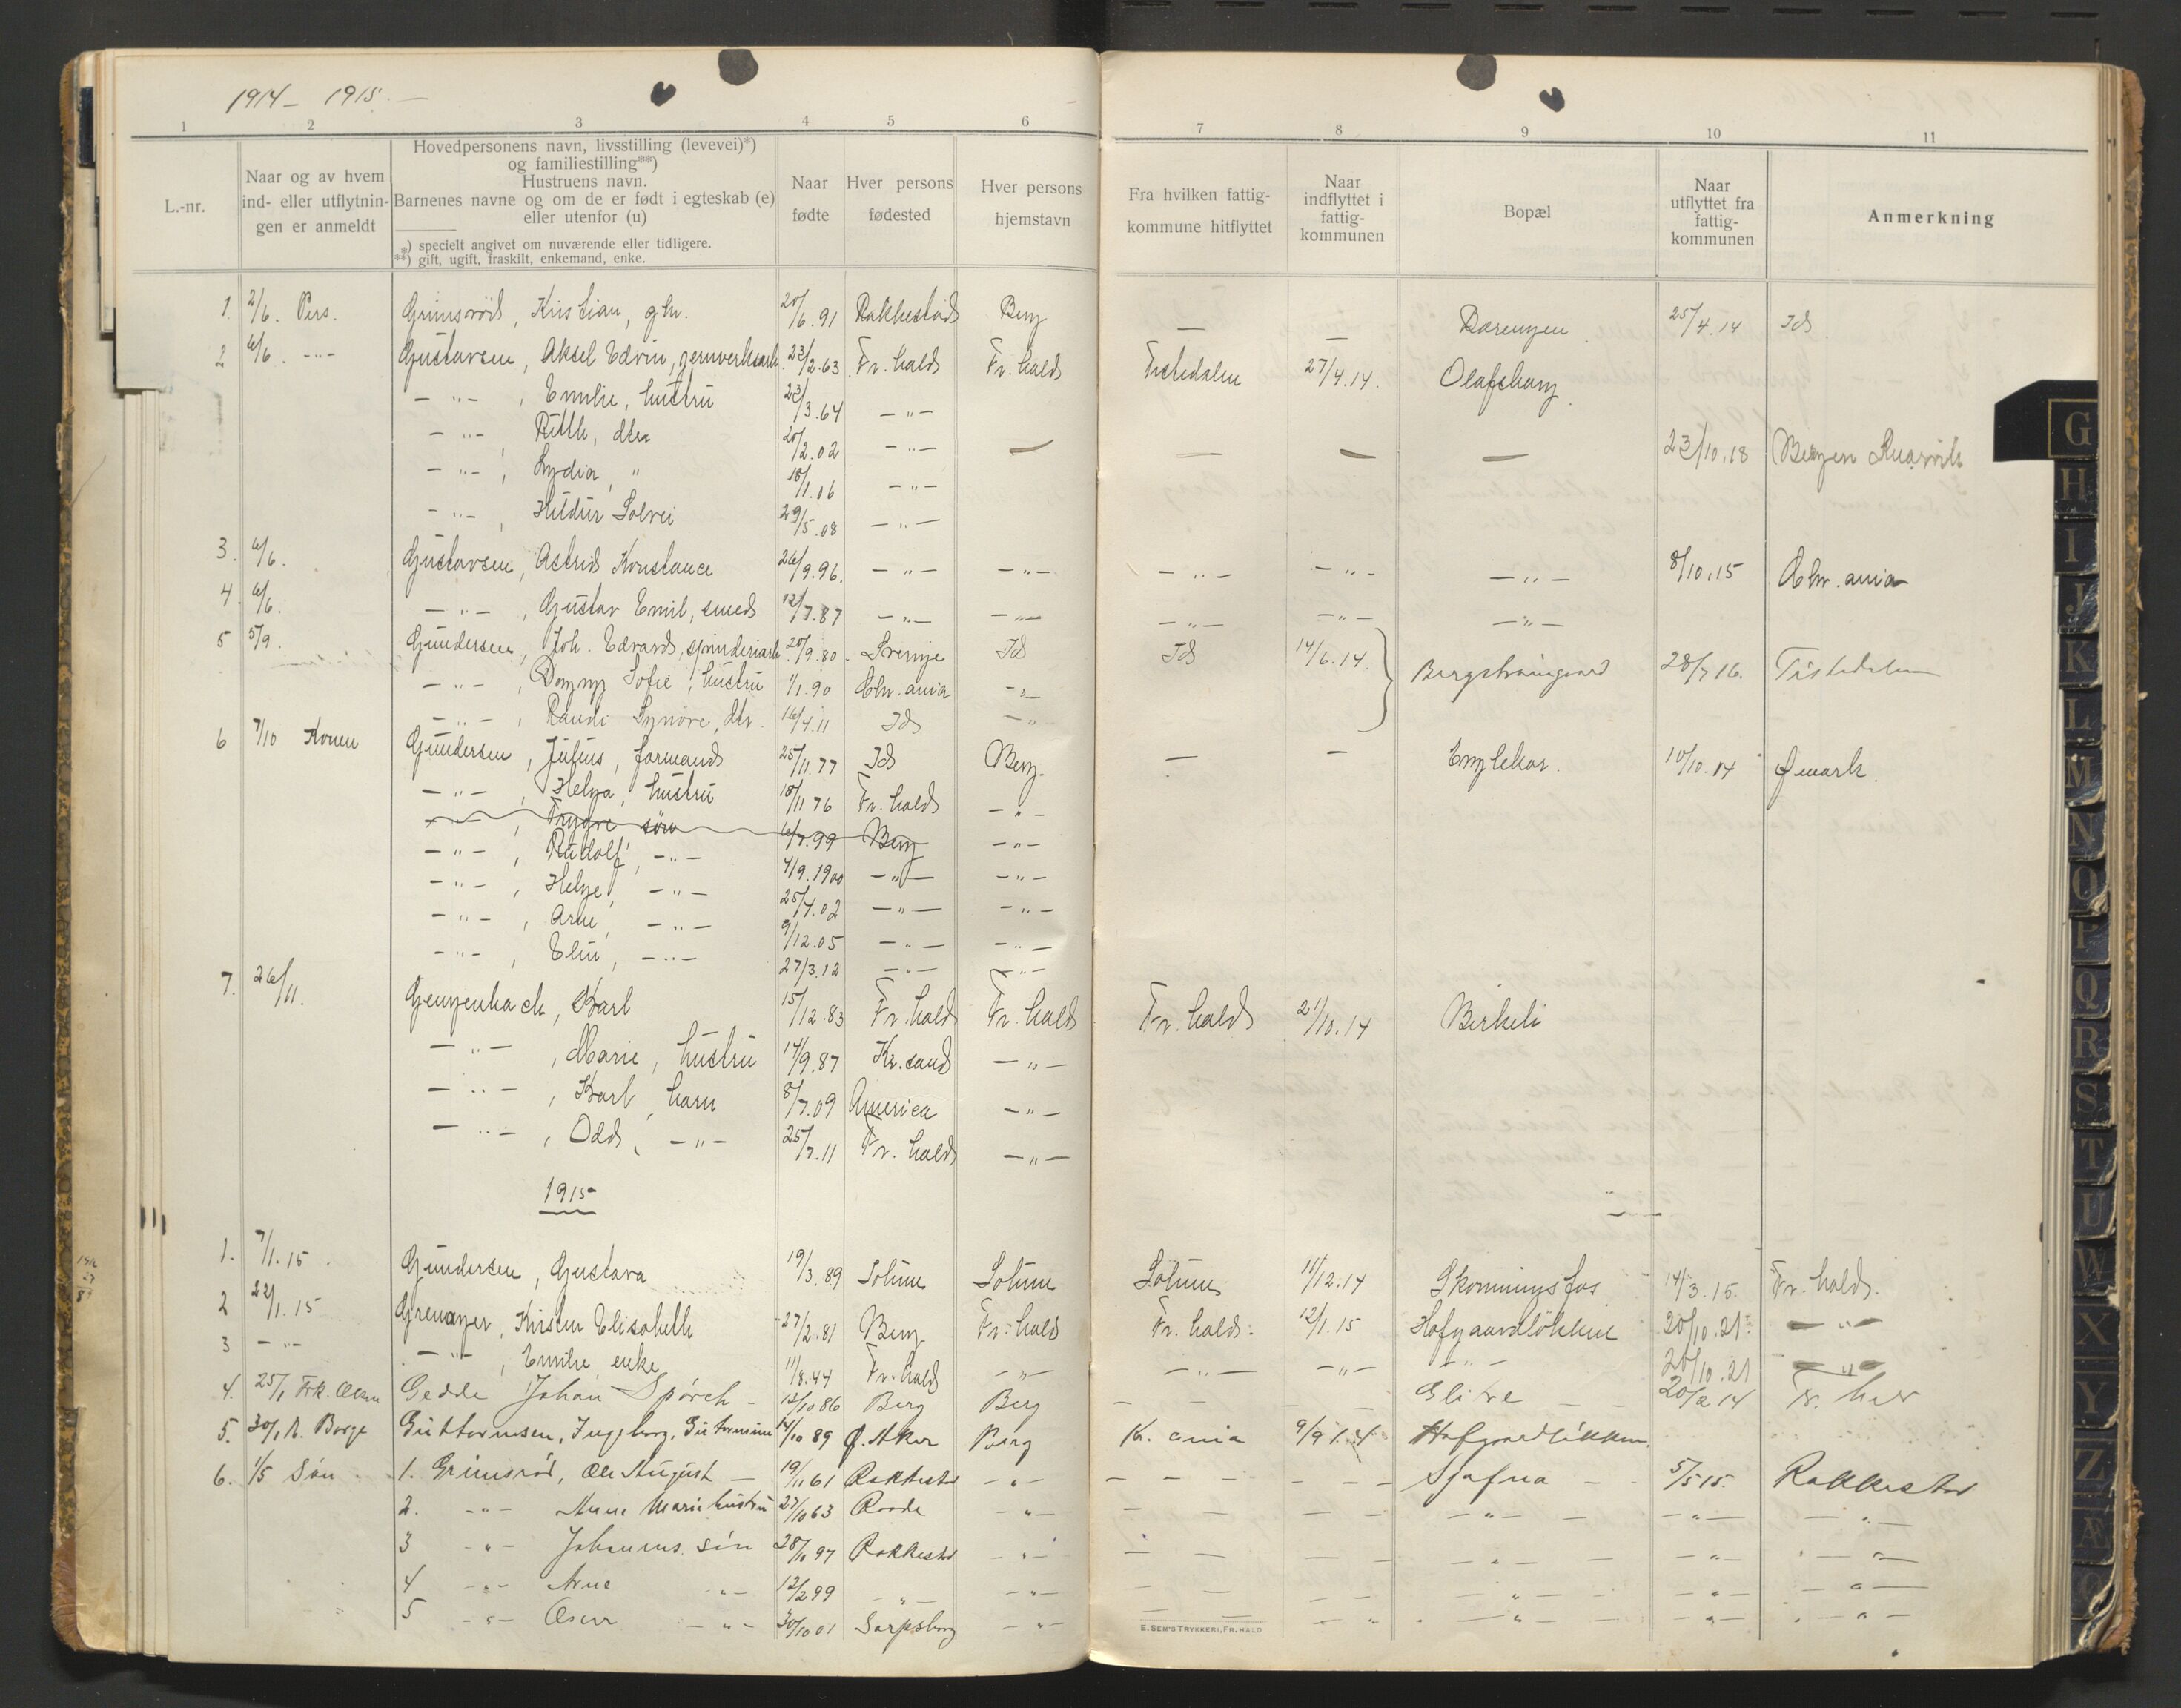 1914 - 1915.
1 2 3 4 5 6 7 8 9 10 11
L.-nr.
Naar og av hvem ind- eller utflytningen er anmeldt
Hovedpersonens navn, livsstilling (levevei)*) og familiestilling**)
Hustruens navn.
Barnenes navne og om de er født i egteskab (e) eller utenfor (u)
*) specielt angivet om nuværende eller tidligere.
**) gift, ugift, fraskilt, enkemand, enke.
Naar fødte
Hver persons fødested
Hver persons hjemstavn
Fra hvilken fattigkommune hitflyttet
Naar indflyttet i fattigkommunen
Bopæl
Naar utflyttet fra fattigkommunen
Anmerkning
1. 2/6. Pers. Grimsröd, Kristian, 20/6.91 Rakkestad Berg — — 25/4.14 Id
2 6/6. -"- Gustavsen, Aksel Edvin, jernverksarb. 23/2.63 Fr.hald Fr.hald Tistedalen 27/4.14. Olafsberg
-"- , Emilie, hustru 23/3.64 -"-
-"- , Ruth, dtr 20/2.02 -"- — — — — 23/10.18 Bergen
-"- , Lydia, " 18/1.06 -"-
-"- , Hildur Solvei 29/5.08 -"-
3. 6/6. Gustavsen, Astrid Konstance 26/9.96. -"- -"- -"- -"- -"- 8/10.15 Chr.ania
4. 6/6. -"- , Gustav Emil, smed 12/7.87 -"- -"- -"- -"- -"-
5 5/9. Gundersen, Joh. Edvard, spinderiarb. 20/9.80. Sverige Id Id 14/6.14. Bergstrømgaard 28/7 16. Tistedalen
-"- , Dagny Sofie, hustru 1/1.90 Chr.ania -"-
-"- , Randi Synöve, dtr. 16/4.11 Id -"-
6 7/10 Konen Gundersen, Julius, formand 25/11.77 Id Berg. — — Englekor. 10/10.14 Ømark.
-"- , Helga, hustru 18/11 76 Fr.hald -"-
-"- , Trygve sön 6/7.99 Berg -"-
-"- , Rudolf, -"- 4/9.1900 -"- -"-
-"- , Helge, -"- 25/4.02 -"- -"-
-"- , Arne, -"- 9/12.05 -"- -"-
-"- , Elin, -"- 27/3.12 -"- -"-
7. 26/11. Gengenbach, Karl 15/12.83 Fr.hald Fr.hald Fr.hald 21/10.14 Birkeli
-"- , Marie, hustru 14/9.87 Kr.sand -"-
-"- , Karl, barn 8/7.09 America -"-
-"- , Odd, -"- 25/7.11 Fr.hald -"-
1915
1. 7/1.15. Gundersen, Gustava 19/3.89 Solum Solum Solum 11/12.14 Skonningsfos 14/3.15. Fr.hald.
2 22/1.15 Grenager, Kirsten Elisabeth 27/2.81 Berg Fr.hald Fr.hald. 12/1.15 Hofgaardløkken 20/10.21 -"-
3 -"- -"- , Emilie enke 11/8.44 Fr.hald -"- -"- -"- -"- 20/10.21 -"-
4. 25/1 Frk. Olsen Gedde Johan Spörck - 12/10 86 Berg Berg — — Glitre — 20/2 14 Fr. hald
5. 30/1 A. Borge Guttormsen, Ingeborg, 14/10 89 Ø. Aker Berg K. ania 9/9 14 Hofgaardløkken.
6. 1/5 Søn 1. Grimsrød, Ole August — 19/11 61 Rakkestad -"- — — — Sjøfna — 5/5 15. Rakkestad
2. -"- Anne Marie hustru 27/10 63 Raade -"- — — — — -"- — -"- -"-
3 -"- Johannes søn 28/11 97 Rakkestad -"- — — — — -"- — -"- -"-
4 -"- Arne -"- 12/2 99 -"- -"- — — — — -"- — -"- -"-
5 -"- Oscar -"- 30/10 01 Sarpsborg -"- — — — " -"- — -"- -"-
E. SEM'S TRYKKERI, FR.HALD
G
H
I
J
K
L
M
N
O
P
Q
R
S
T
U
W
X
Y
Z
Æ
Ø